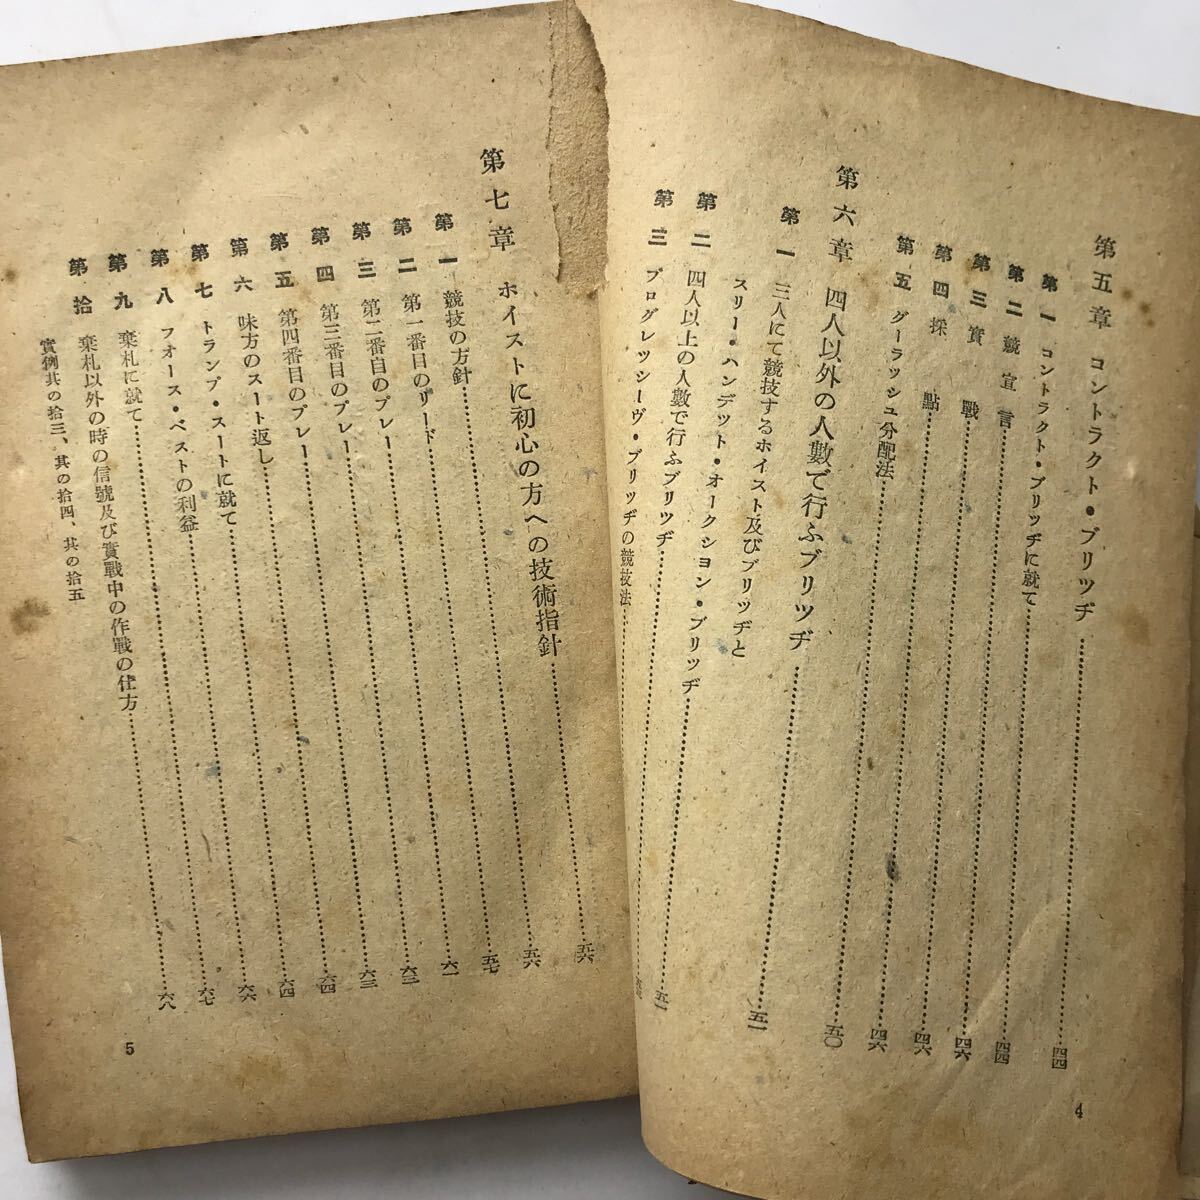 第五章 コントラクト・ブリッヂ……四四
第一 コントラクト・ブリッヂに就て……四四
第二 競宣言……四四
第三 實戰……四六
第四 採點……四六
第五 グーラッシュ分配法……四六
第六章 四人以外の人數で行ふブリッヂ……五〇
第一 三人にて競技するホイスト及びブリッヂと
スリー・ハンデット・オークション・ブリッヂ……五一
第二 四人以上の人數で行ふブリッヂ……五一
第三 プログレッシーヴ・ブリッヂの競技法……
4
第七章 ホイストに初心の方への技術指針……五六
第一 競技の方針……五六
第二 第一番目のリード……五七
第三 第二番自のプレー……六一
第四 第三番目のプレー……六三
第五 第四番目のプレー……六三
第六 味方のスート返し……六四
第七 トランプ・スートに就て……六四
第八 フオース・ベストの利益……六六
第九 棄札に就て……六七
第拾 棄札以外の時の信號及び實戰中の作戰の仕方……六八
實例其の拾三、其の拾四、其の拾五
5